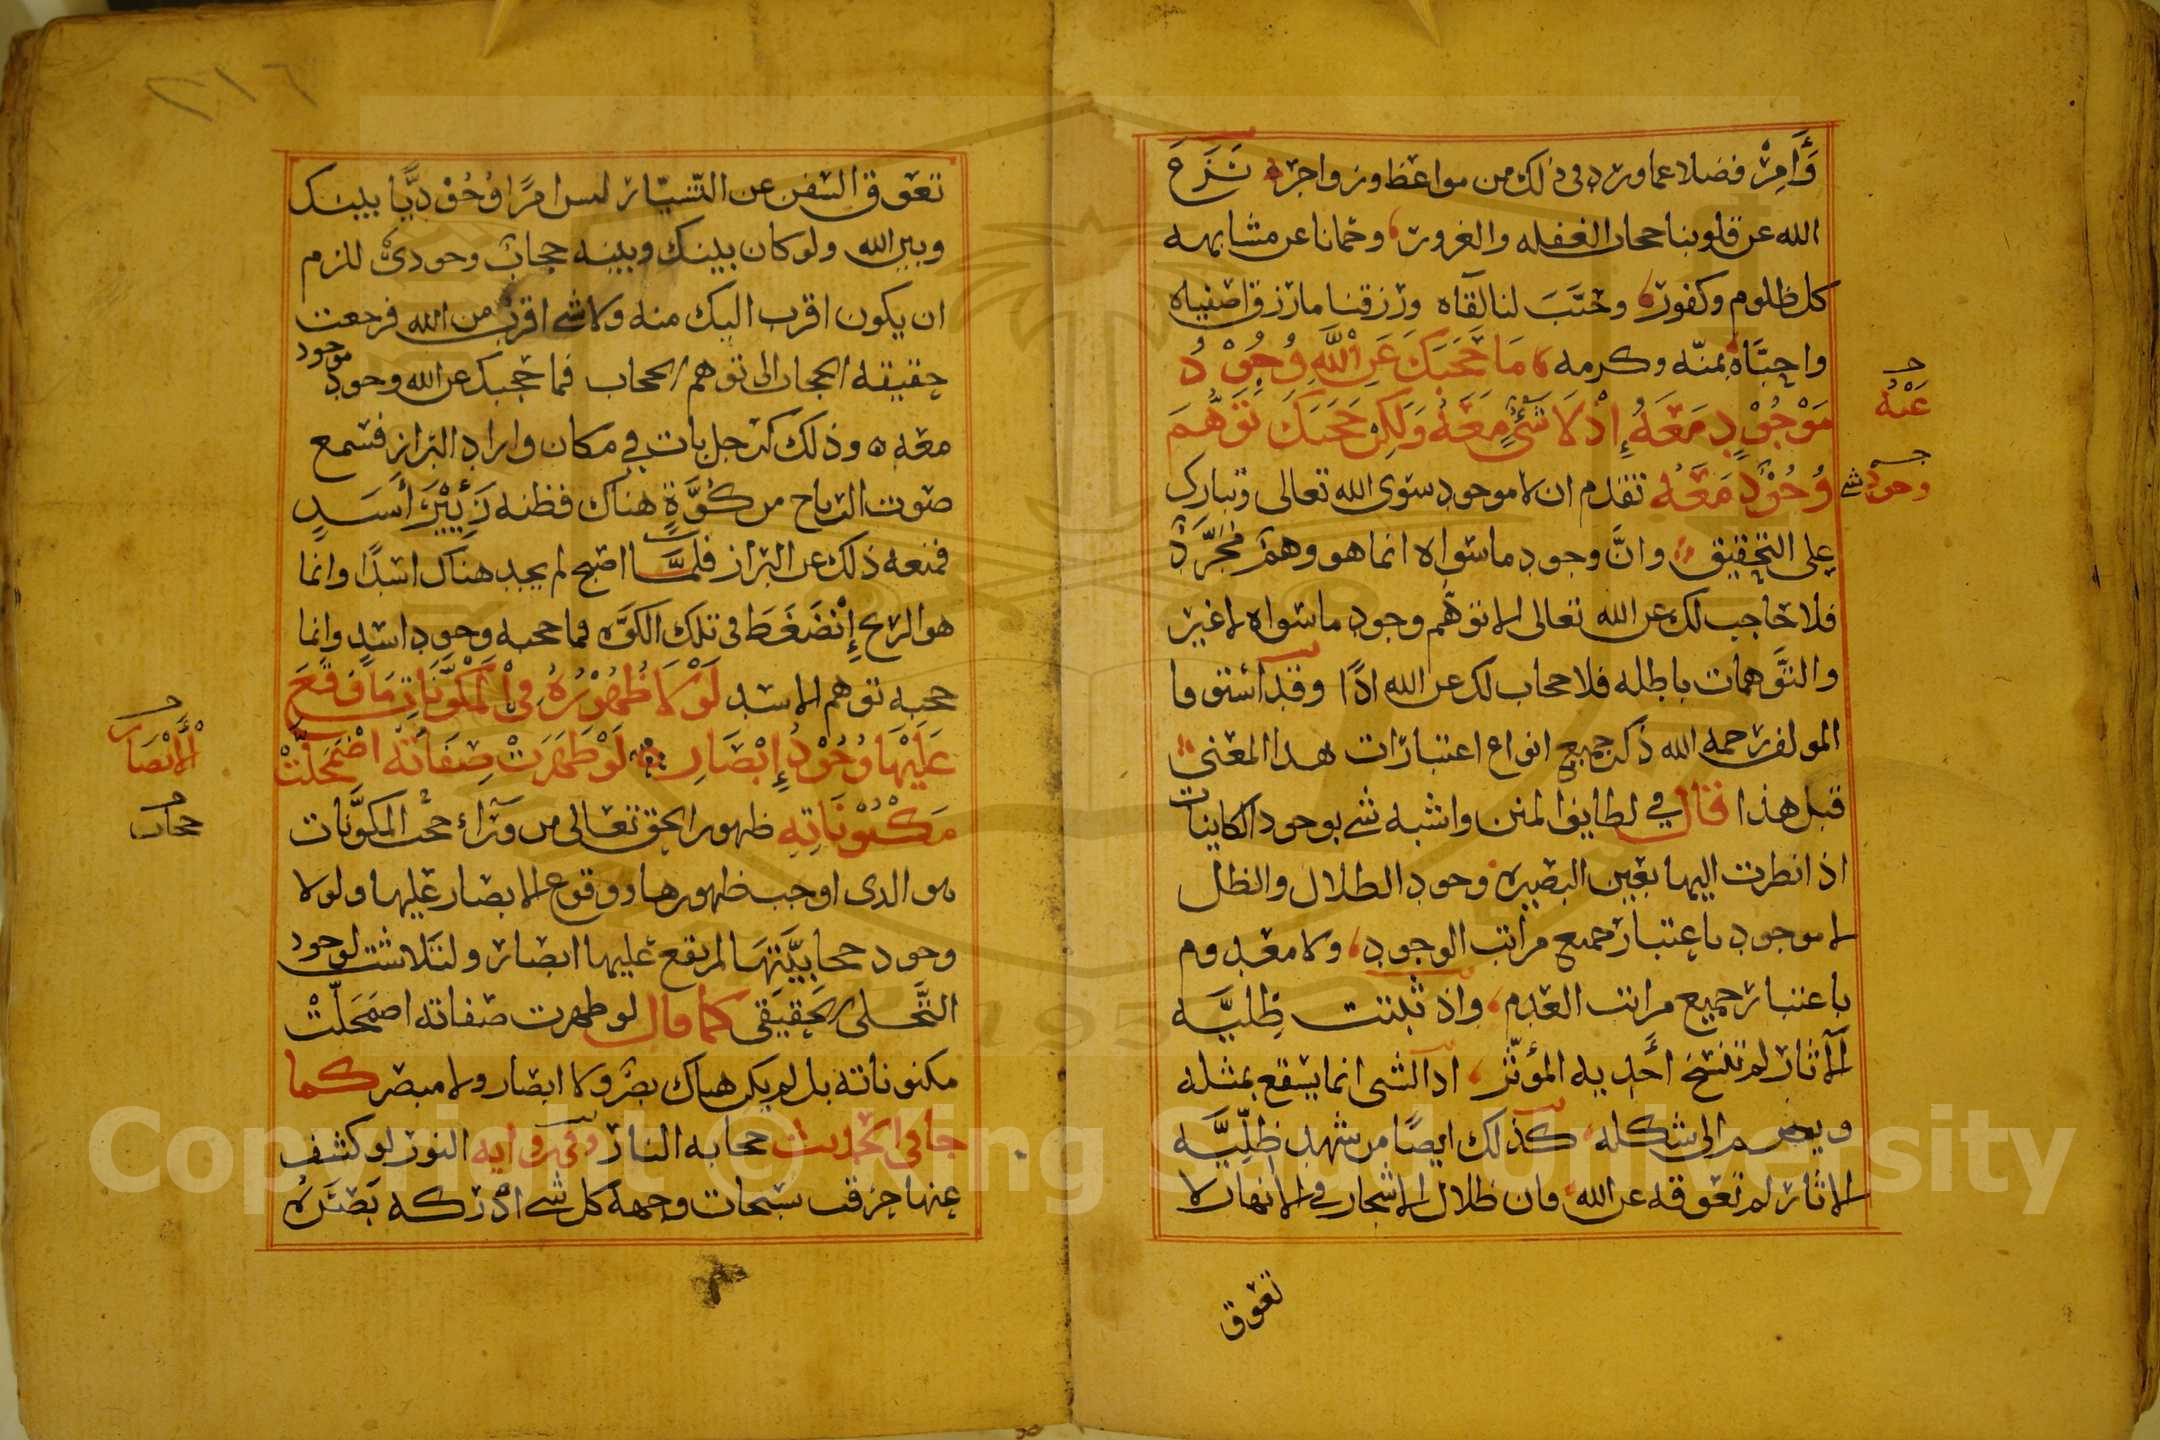 وَأَمِرْ فضلا عما ورد في ذلك من مواعظ وزواجره نَزَحَ
الله عن قلوبنا حجاب الغفله والغرور وحمانا عن مشابهه
كل ظلوم وكفور وحبَّبَ لنا لقآه ورزقنا ما رزق اصفياه
واحبَّاه بمنّه وكرمه مَا حَجَبَكَ عَنِ اللَّهِ وُجُوْدُ
مَوْجُوْدٍ مَعَهُ إِذْ لَا شَيْءَ مَعَهُ وَلَكِنْ حَجَبَكَ تَوَهُّمَ
وُجُوْدٍ مَعَهُ تقدم ان لا موجود سوى الله تعالى وتبارك
على التحقيق وانَّ وجود ما سواه انما هو وهمٌ مُجَرَّدٌ
فلا حاجب لك عن الله تعالى الا توهّم وجود ما سواه لا غير
والتَّوهمات باطله فلا حجاب لك عن الله اذًا وقد استوفا
المولف رحمه الله ذكر جميع انواع اعتبارات هذا المعنى
قبل هذا فقال في لطايف المنن واشبه شي بوجود الكاينات
اذا نظرت اليها بعين البصيره وجود الظلال والظل
لا موجود باعتبار جميع مراتب الوجود ولا معدوم
باعتبار جميع مراتب العدم واذ ثبتت ظِليَّه
الآثار لم تنسخ أحديه المؤثّر اذ الشي انما يشفع بمثله
ويضم الى شكله كذلك ايضًا من شهد ظلِّيَّه
الاثار لم تعوقه عن الله فان ظلال الاشجار في الانهار لا
تعوق
حـ
عَنهُ
حـ
وجود شي
٢١٦
تعوق السفن عن التَّسيار ليس امرًا وُجُوْديًّا بينك
وبين الله ولو كان بينك وبينه حجابٌ وجوديٌّ للزم
ان يكون اقرب اليك منه ولا شي اقرب من الله فرجعت
حقيقه الحجاب الى توهم الحجاب فما حجبك عن الله وجود موجود
معه ه وذلك كرجل بات في مكان واراد البراز فسمع
صوت الرياح من كُوَّةٍ هناك فظنه زَئِيْرَ أَسَدٍ
فمنعه ذلك عن البراز فلمَّا اصبح لم يجد هناك اسدًا وانما
هو الريح إِنْضَغَطَ في تلك الكوّه فما حجبه وجود اسد وانما
حجبه توهم الاسد لَوْ لَا ظُهُوْرُهُ فِي الْمُكَوَّنَاتِ مَا وَقَعَ
عَلَيْهَا وُجُوْدُ إِبْصَارٍ لَوْ ظَهَرَتْ صِفَاتُهُ اضْمَحَلَّتْ
مَكْنُوْنَاتِهِ ظهور الحق تعالى من وَرَآء حجب المكوَّنات
هو الذى اوجب ظهورها ووقوع الابصار عليها ولولا
وجود حجابيَّتهَا لم يقع عليها ابصار ولتلاشت لوجود
التَّجلى الحقيَقي كما قال لو ظهرت صفاته اضمحلّتْ
مكنوناته بل لم يكن هناك بصَر ولا ابصار ولا مبصر كما
جا في الحديث حجابه النار وفي روايه النور لو كشف
عنها احرقت سبحات وجهه كل شي ادركه بَصَرُه
حـ
الْأَبْصَار
حـ
حجاب